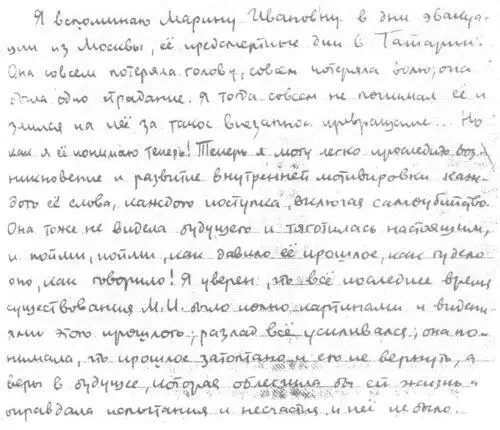 Я вспоминаю Марину Ивановну в дни эвакуа-
ции из Москвы, её предсмертные дни в Татарии.
Она совсем потеряла голову, совсем потеряла волю; она
была одно страдание. Я тогда совсем не понимал её и
злился на неё за такое внезапное превращение... Но
как я её понимаю теперь! Теперь я могу легко проследить воз-
никновение и развитие внутренней мотивировки каж-
дого её слова, каждого поступка, включая самоубийство.
Она тоже не видела будущего и тяготилась настоящим,
и пойми, пойми, как давило её прошлое, как гудело
оно, как говорило! Я уверен, что всё последнее время
существования М.И. было полно картинами и видени-
ями этого прошлого; разлад всё усиливался; она по-
нимала, что прошлое затоптано и его не вернуть, а
веры в будущее, которая облегчила бы ей жизнь и
оправдала испытания и несчастья, у неё не было...